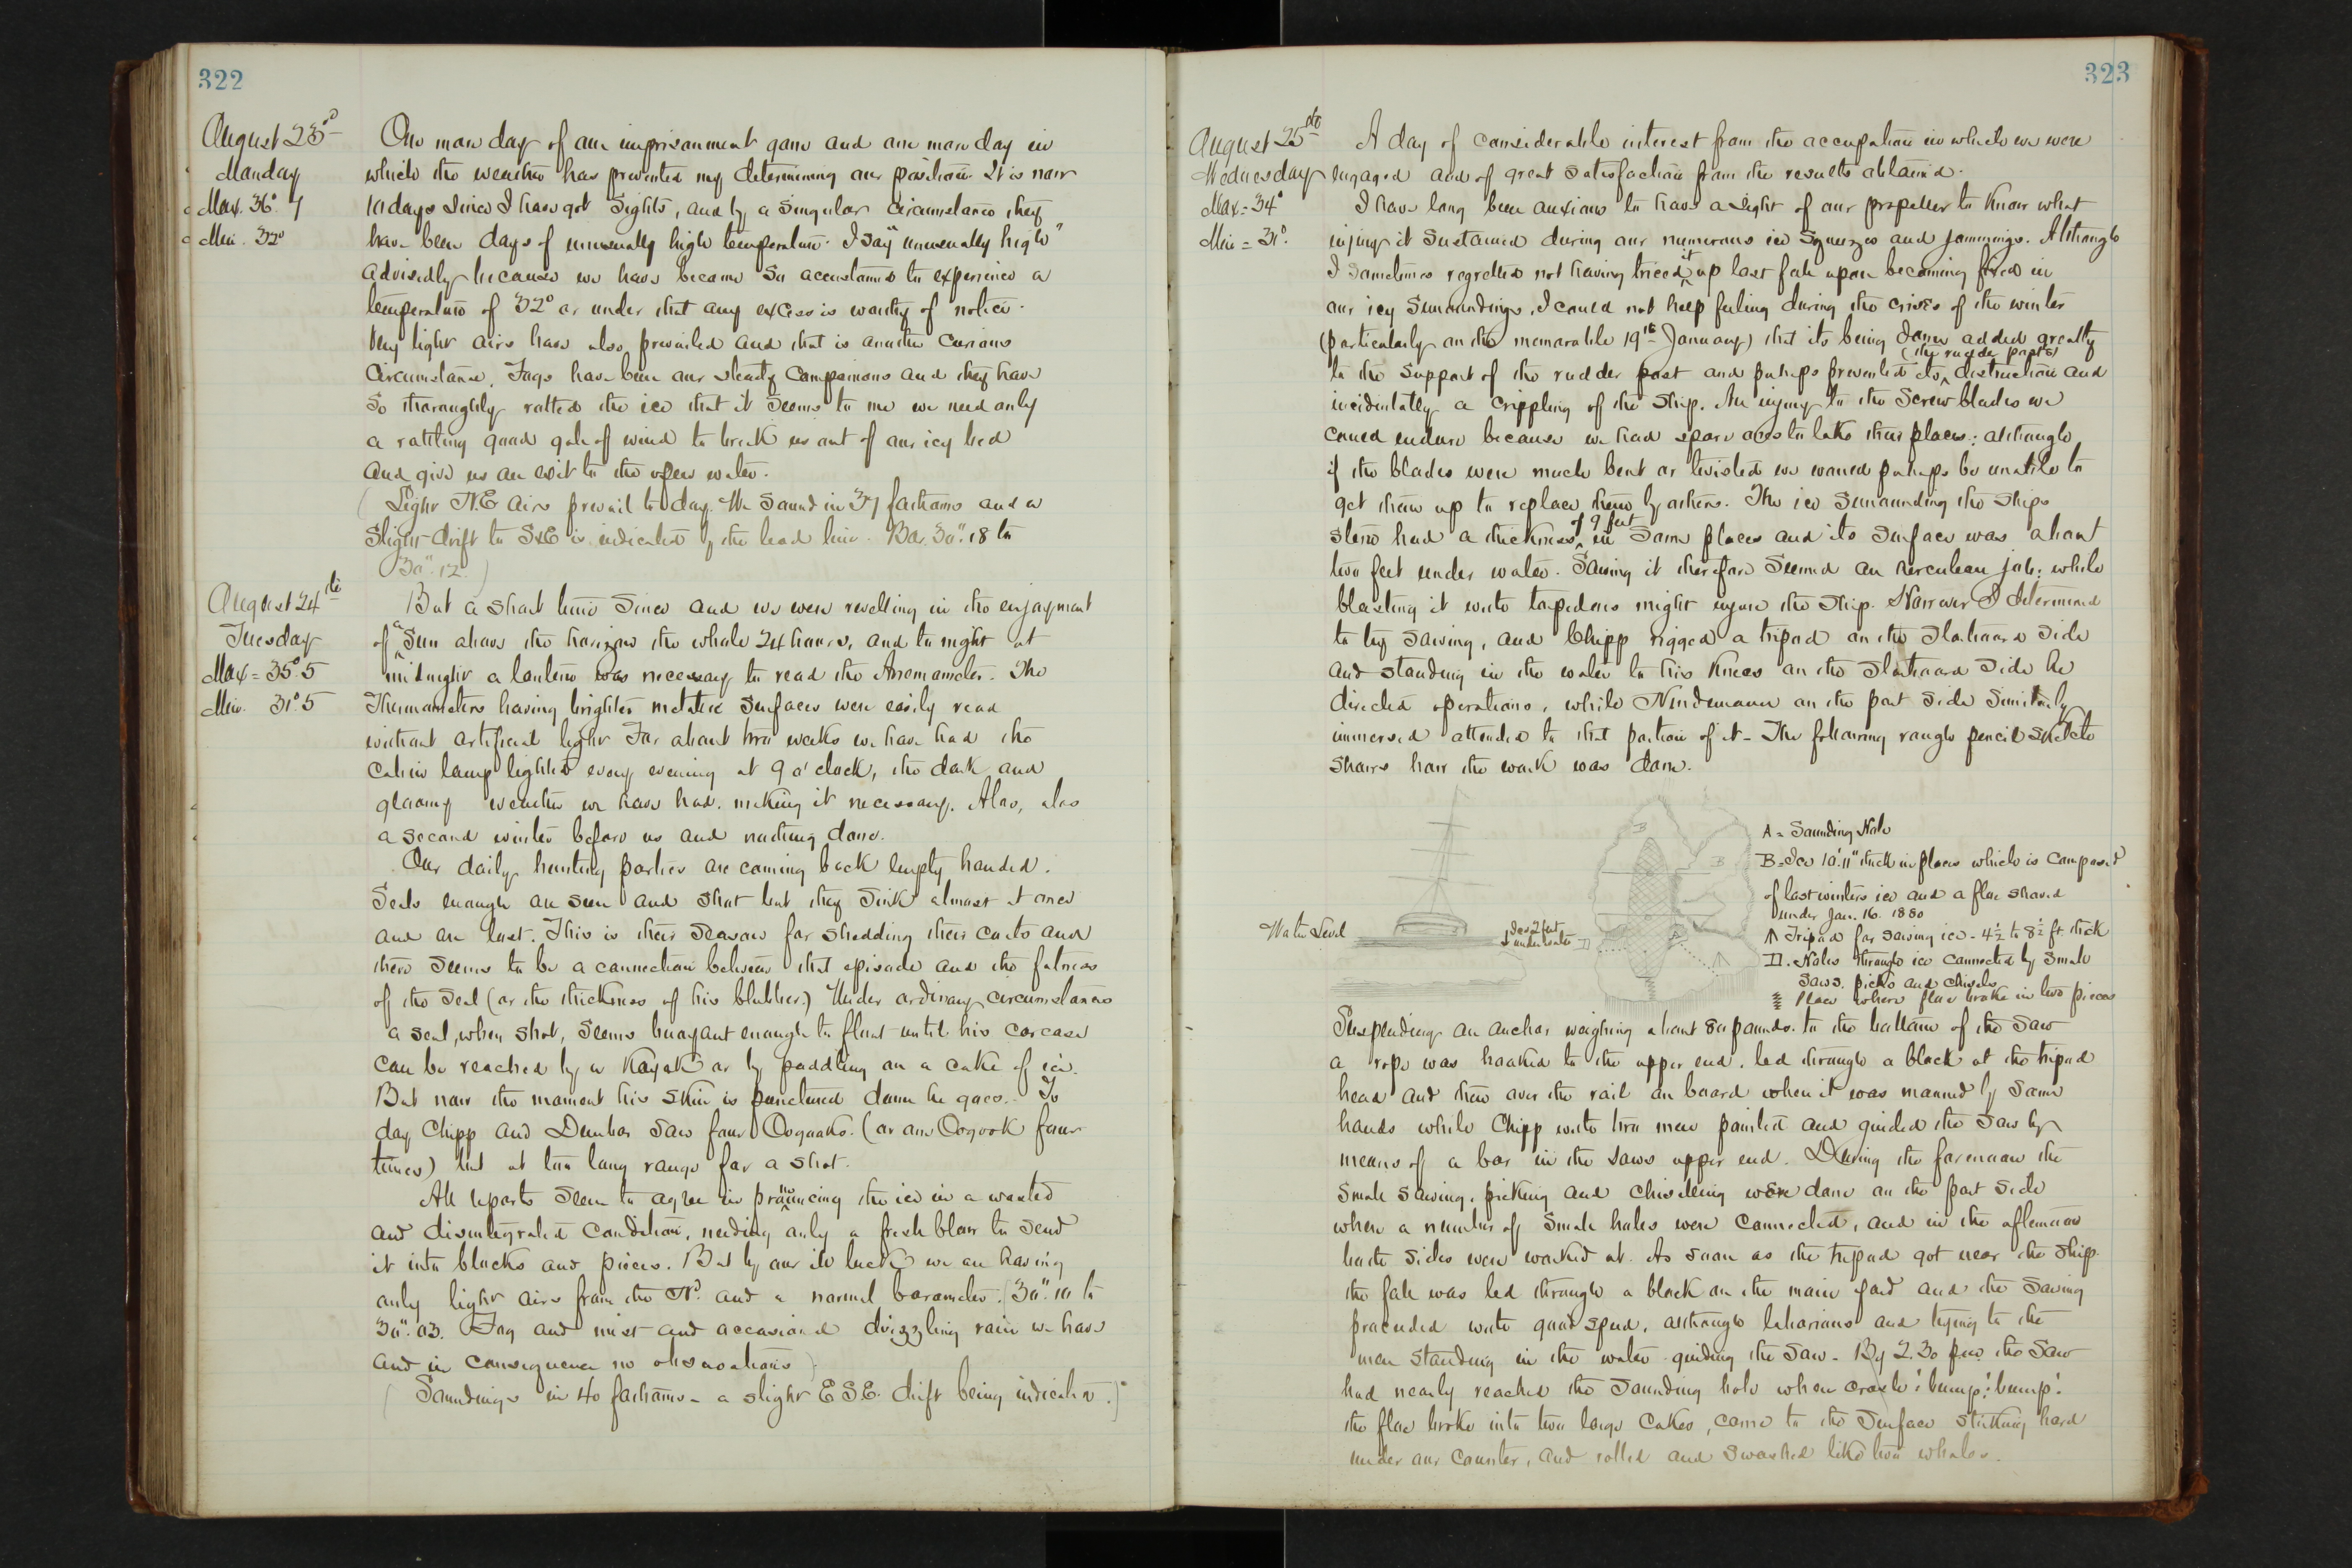 322
August 23d
Monday
Max. 36°.7
Min. 32°
One more day of our imprisonment gone and one more day in
which the weather has prevented my determining our position. It is now
10 days since I have got sights, and by a singular circumstance they
have been days of unusually high temperature. I say "unusually high"
advisedly because we have become so accustomed to experience a
temperature of 32° or under that any excess is worthy of notice.
Very light airs have also prevailed and that is another curious
circumstance. Fogs have been our steady companions and they have
so thoroughly rotted the ice that it seems to me we need only
a rattling good gale of wind to break us out of our icy bed
and give us an exit to the open water.
(Light N.E. airs prevail to day. We sound in 37 fathoms and a
slight drift to SxE is indicated by the lead line. Bar. 30".18 to
30".12.)
August 24th
Tuesday
Max = 35°.5
Min. 31°.5
But a short time since and we were revelling in the enjoyment
of a Sun above the horizon the whole 24 hours, and to night at
midnight a lantern was necessary to read the Anemometer. The
Thermometers having brighter metallic surfaces were easily read
without artificial light. For about two weeks we have had the
cabin lamp lighted every evening at 9 o'clock, the dark and
gloomy weather we have had, making it necessary. Alas, alas
a second winter before us and nothing done.
Our daily hunting parties are coming back empty handed.
Seals enough are seen and shot but they sink almost at once
and are lost. This is their season for shedding their coats and
there seems to be a connection between that episode and the fatness
of the seal (or the thickness of his blubber.) Under ordinary circumstances
a seal, when shot, seems buoyant enough to float until his carcase
can be reached by a kayak or by paddling on a cake of ice.
But now the moment his skin is punctured down he goes. To
day Chipp and Dunbar saw four Oogooks. (or one Oogook four
times) but at too long range for a shot.
All reports seem to agree in pronouncing the ice in a wasted
and disintegrated condition, needing only a fresh blow to send
it into blocks and pieces. But by our ill luck we are having
only light airs from the Nd. and a normal barometer. (30".10 to
30".03. Fog and mist and occasional drizzling rain we have
and in consequence no observations)
(Soundings in 40 fathoms - a slight E.S.E. drift being indicated.)
323
August 25th
Wednesday
Max = 34°
Min = 31°.
A day of considerable interest from the occupation in which we were
engaged and of great satisfaction from the results obtained.
I have long been anxious to have a sight of our propeller to know what
injury it sustained during our numerous ice squeezes and jammings. Although
I sometimes regretted not having triced it up last fall upon becoming fixed in
our icy surroundings, I could not help feeling during the crises of the winter
(particularly on the memorable 19th January) that its being down added greatly
to the support of the rudder post and perhaps prevented its (the rudder posts) destruction and
incidentally a crippling of the ship. An injury to the screw blades we
could endure because we had spare ones to take their places: although
if the blades were much bent or twisted we would perhaps be unable to
get them up to replace them by others. The ice surrounding the ships
stern had a thickness of 9 feet in some places and its surface was about
two feet under water. Sawing it therefore seemed an herculean job: while
blasting it with torpedoes might injure the ship. However I determined
to try sawing, and Chipp rigged a tripod on the starboard side
and standing in the water to his knees on the starboard side he
directed operations, while Nindemann on the port side similarly
immersed attended to that portion of it. The following rough pencil sketch
shows how the work was done.
Water Level
Ice 2 feet
under water
B
B
A
D
A = Sounding Hole
B = Ice 10'.11" thick in places which is composed
of last winters ice and a floe shoved
under Jan. 16. 1880
Tripod for sawing ice - 4½ to 8½ ft thick
D. Holes through ice connected by small
saws, picks and chisels
Place where floe broke in two pieces
Suspending an anchor weighing about 80 pounds. to the bottom of the saw
a rope was hooked to the upper end, led through a block at the tripod
head and then over the rail on board when it was manned by some
hands while Chipp with two men pointed and guided the saw by
means of a bar in the saws upper end. During the forenoon the
small sawing, picking and chiselling were done on the port side
where a number of small holes were connected, and in the afternoon
both sides were worked at. As soon as the tripod got near the ship
the fall was led through a block on the main yard and the sawing
proceeded with good speed, although laborious and trying to the
men standing in the water guiding the saw. By 2.30 pm the saw
had nearly reached the sounding hole when crack! bump! bump!
the floe broke into two large cakes, came to the surface striking hard
under our counter, and rolled and swashed like two whales.